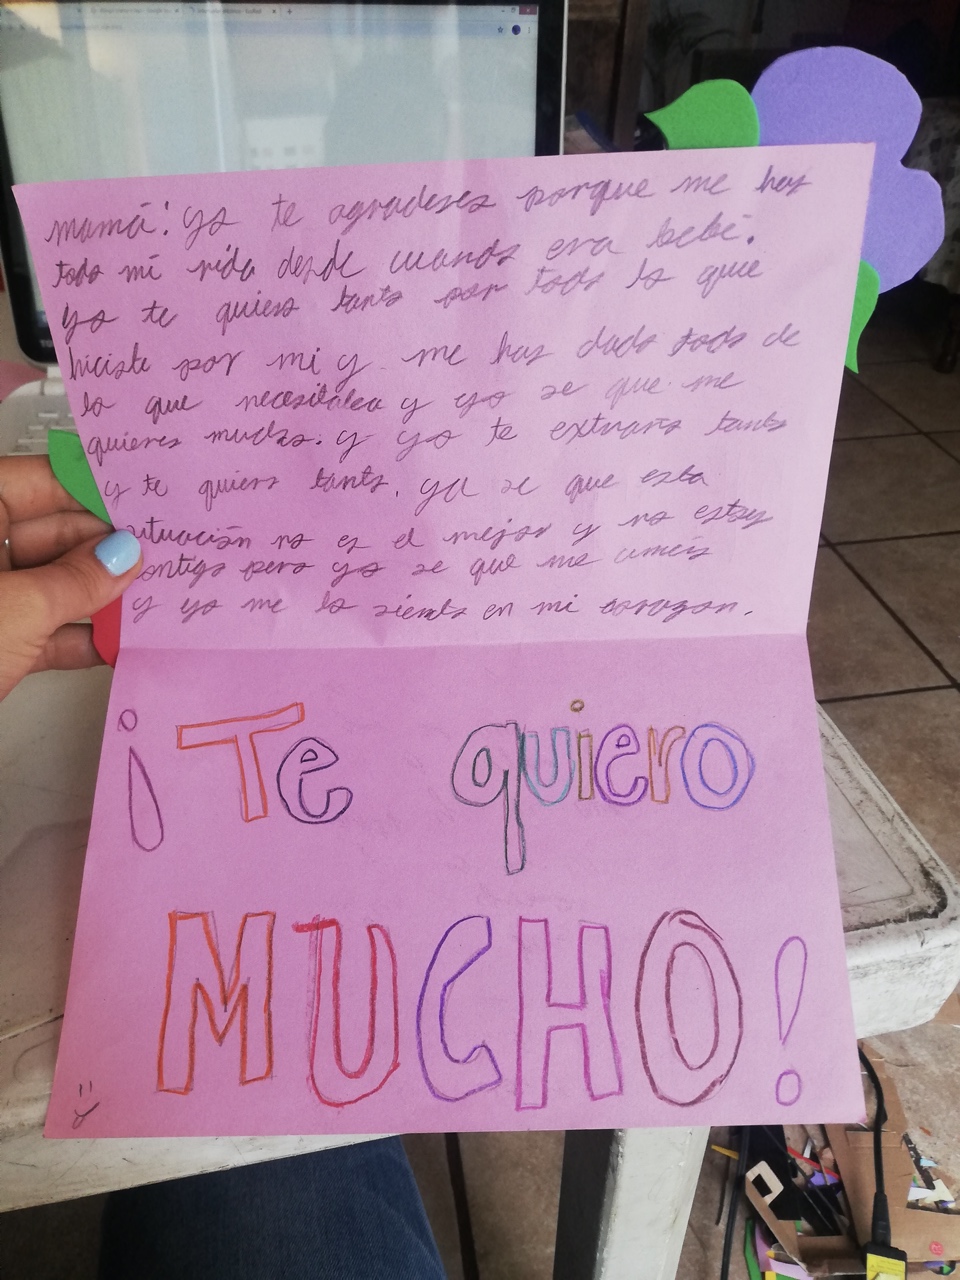 mamá: yo te agradesco porque me has
todo mi vida desde cuando era bebé.
yo te quiero tanto por todo lo que
hiciste por mi y me has dado todo de
lo que necesitaba y yo se que me
quieres mucho. y yo te extraño tanto
y te quiero tanto. ya se que esta
situación no es el mejor y no estoy
contigo pero yo se que me
y yo me lo siento en mi corazon.
¡Te quiero
MUCHO!